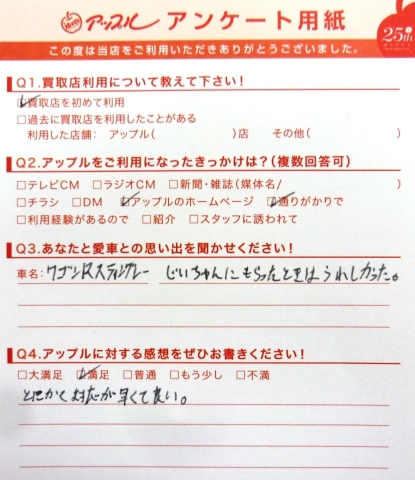 アップル アンケート用紙
25th
この度は当店をご利用いただきありがとうございました。
Q1.買取店利用について教えて下さい!
☑買取店を初めて利用
□過去に買取店を利用したことがある
利用した店舗: アップル( )店 その他( )
Q2.アップルをご利用になったきっかけは?(複数回答可)
□テレビCM □ラジオCM □新聞・雑誌(媒体名/ )
□チラシ □DM ☑アップルのホームページ ☑通りがかりで
□利用経験があるので □紹介 □スタッフに誘われて
Q3.あなたと愛車との思い出を聞かせください!
車名: ワゴンRスティングレー じいちゃんにもらったときはうれしかった。
Q4.アップルに対する感想をぜひお書きください!
□大満足 ☑満足 □普通 □もう少し □不満
とにかく対応が早くて良い。